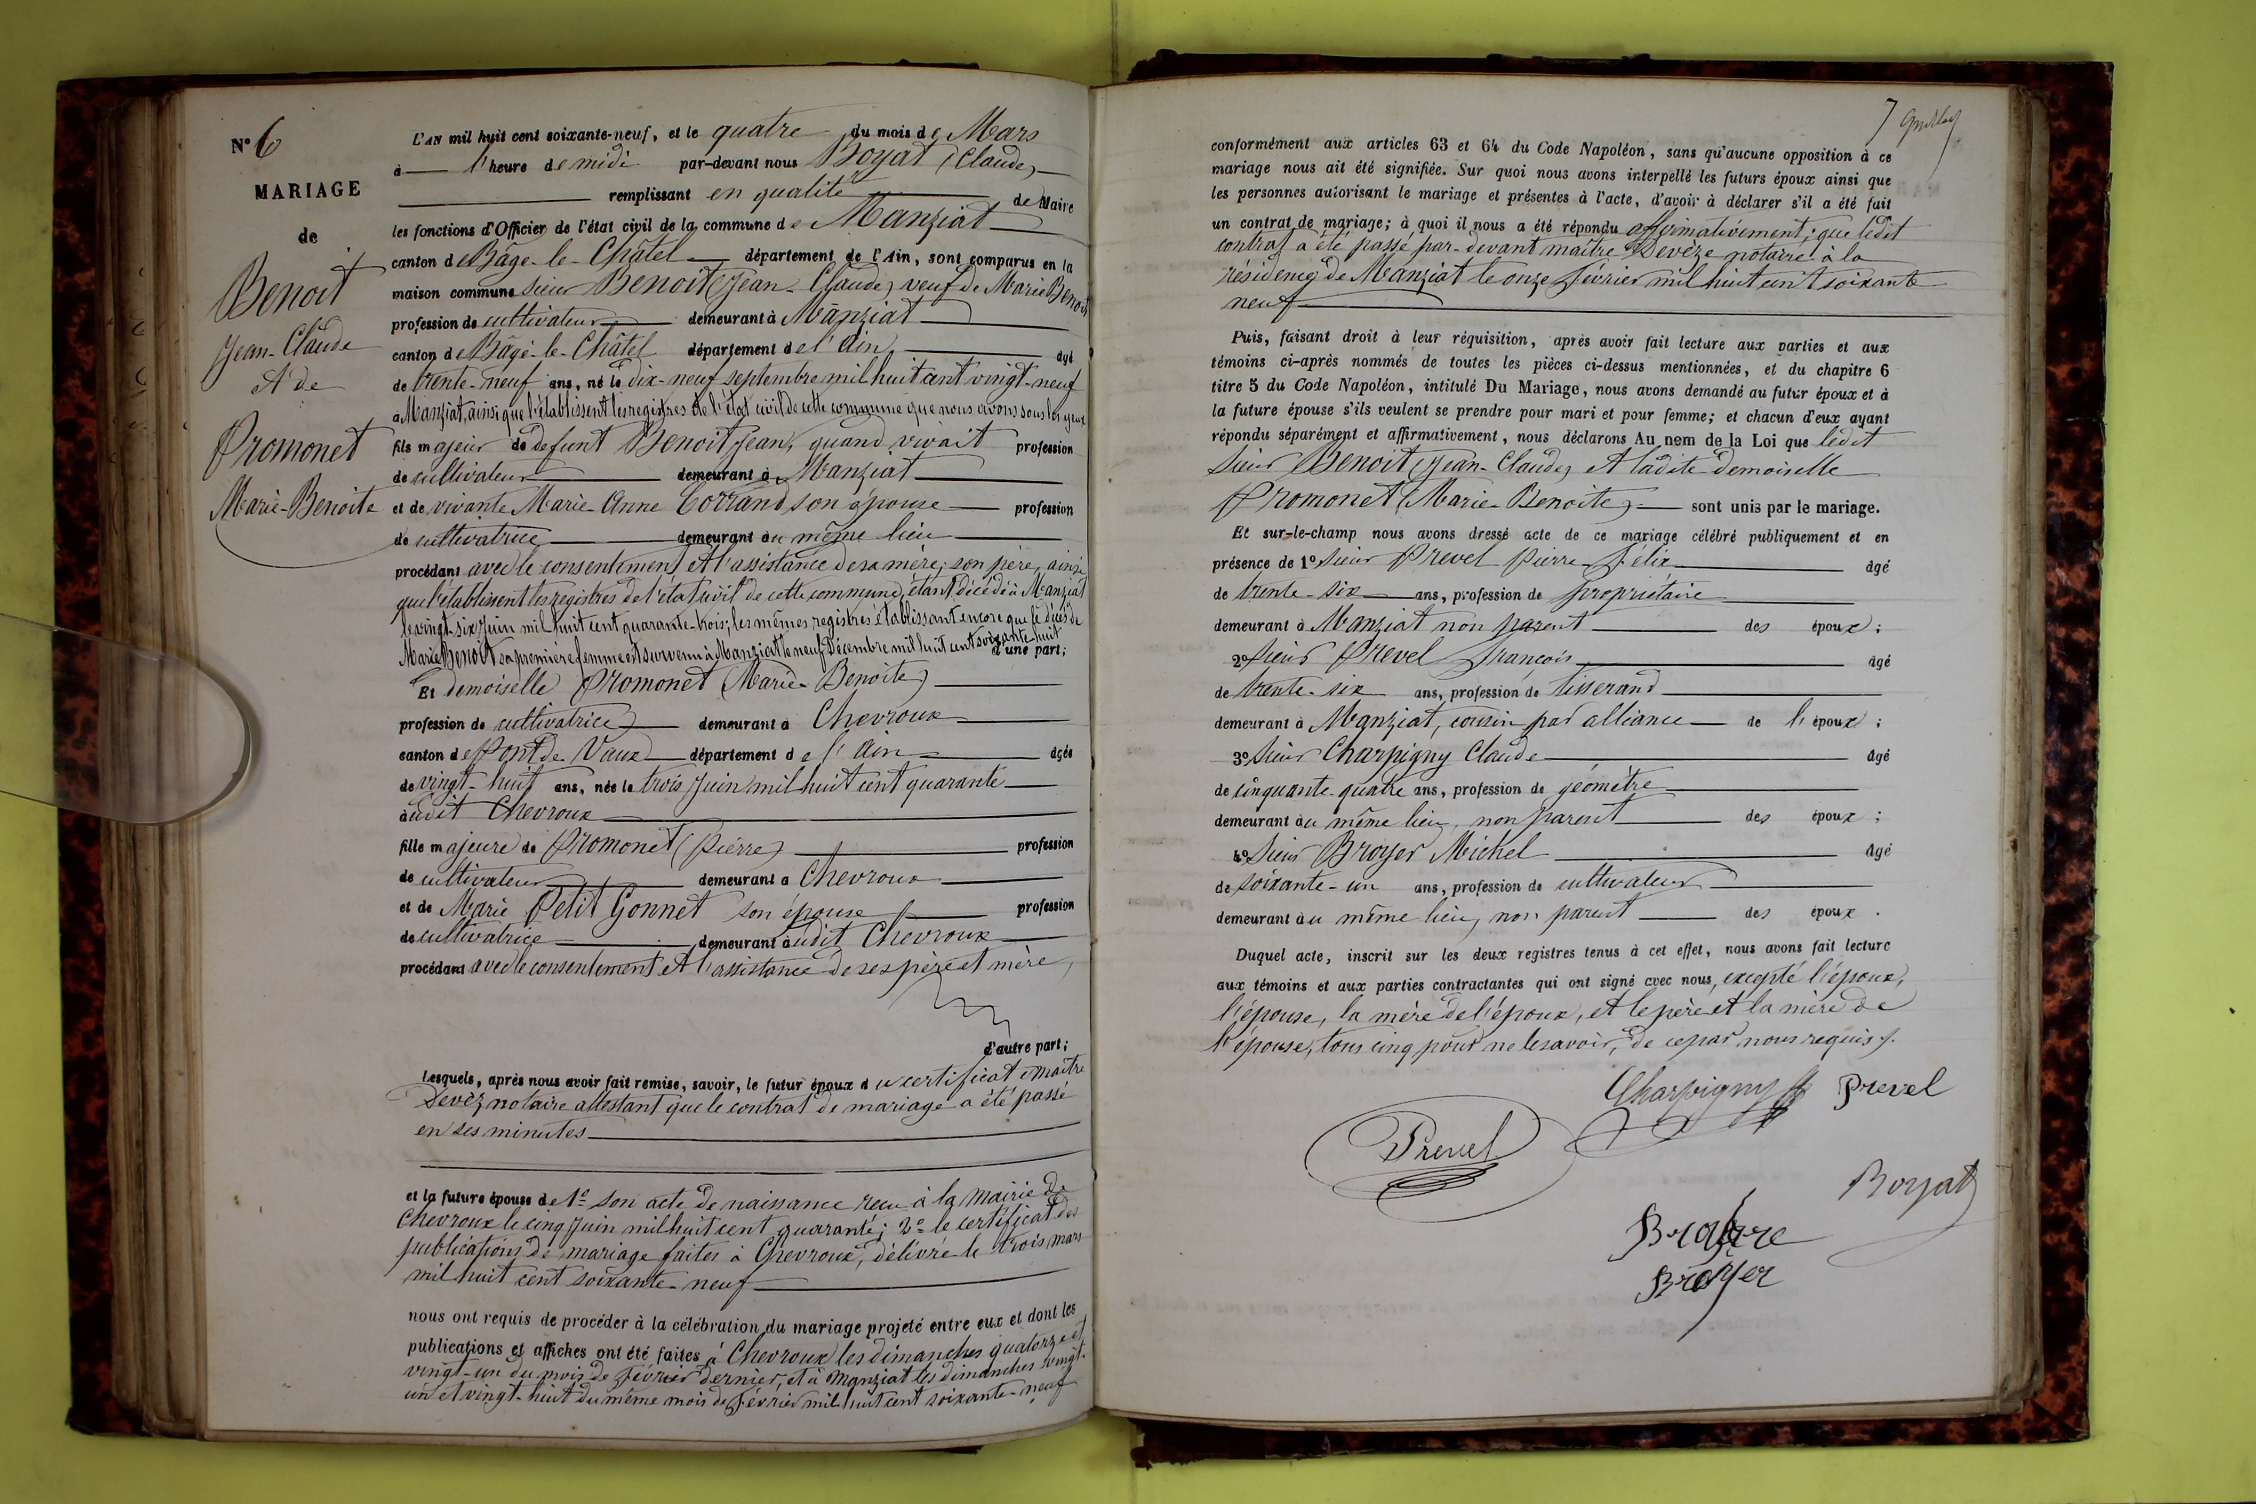 N° 6
MARIAGE
de
Benoit
Jean-Claude
Et de
Promonet
Marie-Benoite
L'AN mil huit cent soixante-neuf, et le quatre du mois de Mars
à l'heure de midi par-devant nous Boyat (Claude)
remplissant en qualité de Maire
les fonctions d'Officier de l'état civil de la commune de Manziat
canton de Bâgé-le-Châtel département de l'Ain, sont comparus en la
maison commune sieur Benoit (Jean-Claude) veuf de Marie Benoit
profession de cultivateur demeurant à Manziat
canton de Bâgé-le-Châtel département de l'Ain âgé
de trente-neuf ans, né le dix-neuf septembre mil huit cent vingt-neuf
à Manziat, ainsi que l'établissent les registres de l'état civil de cette commune que nous avons sous les yeux
fils majeur de defunt Benoit Jean, quand vivait profession
de cultivateur demeurant à Manziat
et de vivante Marie-Anne Corrand son épouse profession
de cultivatrice demeurant au même lieu
procédant avec le consentement et l'assistance de sa mère; son père, ainsi
que l'établissent les registres de l'état civil de cette commune, étant décédé à Manziat
le vingt-six Juin mil huit cent quarante-trois; les mêmes registres établissant encore que le décès de
Marie Benoit sa première femme est survenu à Manziat le neuf Décembre mil huit cent soixante-huit
d'une part;
Et demoiselle Promonet (Marie-Benoite)
profession de cultivatrice demeurant à Chevroux
canton de Pont de Vaux département de l'Ain âgée
de vingt-huit ans, née le trois Juin mil huit cent quarante
audit Chevroux
fille majeure de Promonet (Pierre) profession
de cultivateur demeurant à Chevroux
et de Marie Petit Gonnet son épouse profession
de cultivatrice demeurant audit Chevroux
procédant avec le consentement et l'assistance de ses père et mère,
d'autre part;
Lesquels, après nous avoir fait remise, savoir, le futur époux du certificat Maître
Devèz notaire attestant que le contrat de mariage a été passé
en ses minutes
et la future épouse de 1° son acte de naissance reçu à la Mairie de
Chevroux le cinq Juin mil huit cent quarante; 2° le certificat des
publications de mariage faites à Chevroux, délivré le trois mars
mil huit cent soixante-neuf
nous ont requis de procéder à la célébration du mariage projeté entre eux et dont les
publications et affiches ont été faites à Chevroux les dimanches quatorze et
vingt-un du mois de Février dernier, et à Manziat les dimanches vingt-
un et vingt-huit du même mois de Février mil huit cent soixante-neuf
7
conformément aux articles 63 et 64 du Code Napoléon, sans qu'aucune opposition à ce
mariage nous ait été signifiée. Sur quoi nous avons interpellé les futurs époux ainsi que
les personnes autorisant le mariage et présentes à l'acte, d'avoir à déclarer s'il a été fait
un contrat de mariage; à quoi il nous a été répondu affirmativement; que ledit
contrat a été passé par-devant maître Devèze notaire à la
résidence de Manziat le onze Février mil huit cent soixante
neuf
Puis, faisant droit à leur réquisition, après avoir fait lecture aux parties et aux
témoins ci-après nommés de toutes les pièces ci-dessus mentionnées, et du chapitre 6
titre 5 du Code Napoléon, intitulé Du Mariage, nous avons demandé au futur époux et à
la future épouse s'ils veulent se prendre pour mari et pour femme; et chacun d'eux ayant
répondu séparément et affirmativement, nous déclarons Au nom de la Loi que ledit
sieur Benoit (Jean-Claude) et ladite demoiselle
Promonet (Marie-Benoite) sont unis par le mariage.
Et sur-le-champ nous avons dressé acte de ce mariage célébré publiquement et en
présence de 1° sieur Prevel Pierre-Félix âgé
de trente-six ans, profession de propriétaire
demeurant à Manziat non parent des époux;
2° sieur Prevel François âgé
de trente-six ans, profession de tisserand
demeurant à Manziat, cousin par alliance de l'époux;
3° sieur Charpigny Claude âgé
de cinquante-quatre ans, profession de géomètre
demeurant au même lieu, non parent des époux;
4° sieur Broyer Michel âgé
de soixante-un ans, profession de cultivateur
demeurant au même lieu, non parent des époux.
Duquel acte, inscrit sur les deux registres tenus à cet effet, nous avons fait lecture
aux témoins et aux parties contractantes qui ont signé avec nous, excepté l'époux,
l'épouse, la mère de l'époux, et le père et la mère de
l'épouse, tous cinq pour ne le savoir, de ce par nous requis.
Charpigny Prevel
Prevel
Boyat
Broyer